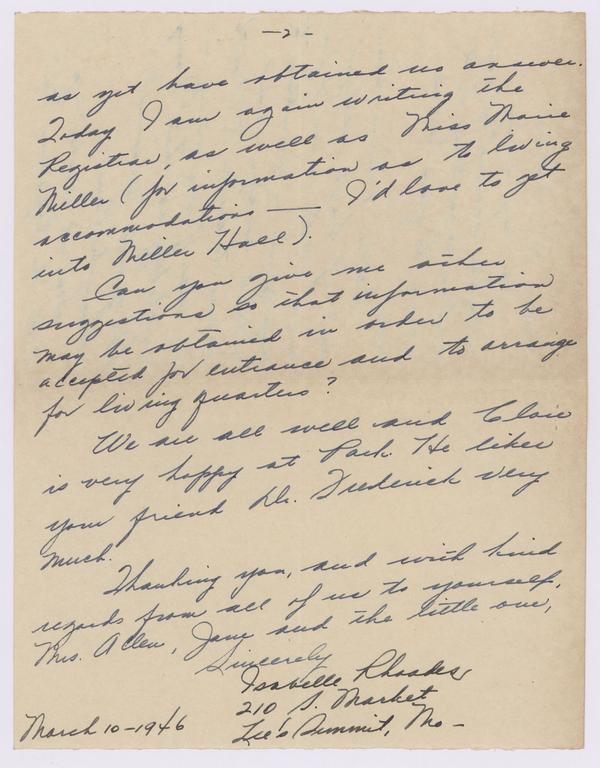 -2-
as yet have obtained no answer.
Today I am again writing the
Registrar, as well as Miss Marie
Miller (for information as to living
accommodations — I'd love to get
into Miller Hall).
Can you give me other
suggestions so that information
may be obtained in order to be
accepted for entrance and to arrange
for living quarters?
We are all well and
is very happy at Park. He likes
your friend Dr. Frederick very
much.
Thanking you, and with kind
regards from all of us to yourself,
Mrs. Allen, Jane and the little one,
Sincerely
Isabelle Rhoades
210 S. Market
Lee's Summit, Mo-
March 10-1946